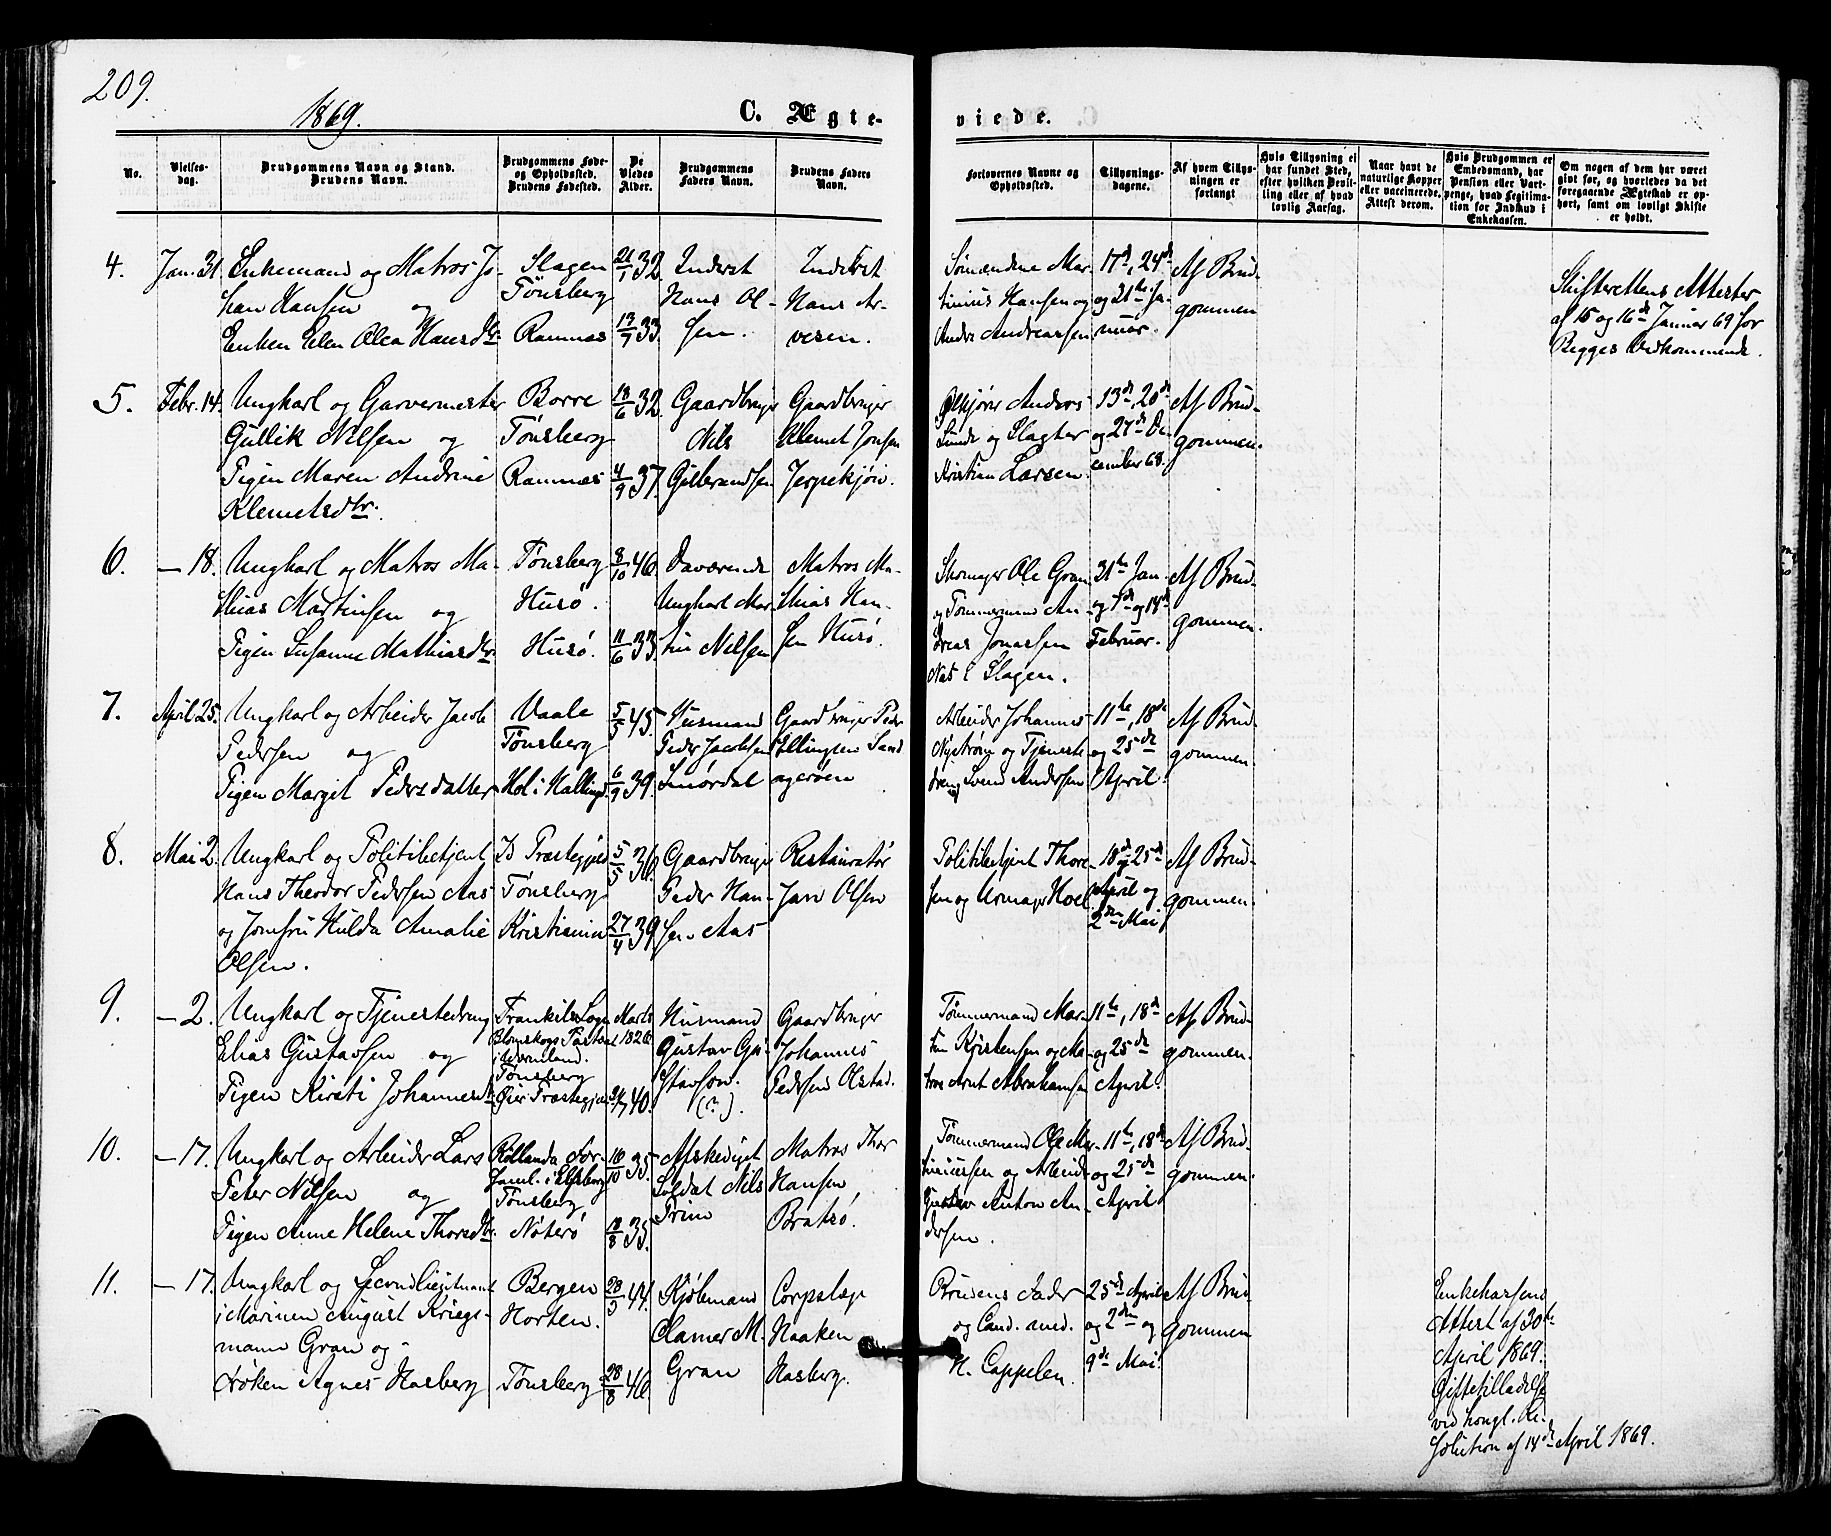 209.
1869.
C. Ægte-
viede.
No.
Vielses-
dag.
Brudgommens Navn og Stand.
Brudens Navn.
Brudgommens Føde-
og Opholdssted.
Brudens Fødested.
De
Viedes
Alder.
Brudgommens
Faders Navn.
Brudens Faders
Navn.
Forlovernes Navne og
Opholdssted.
Tillysnings-
dagene.
Af hvem Tillys-
ningen er
forlangt
Hvis Tillysning ei
har fundet Sted,
efter hvilken Bevil-
ling eller af hvad
lovlig Aarsag.
Naar havt de
naturlige Kopper
eller vaccinerede.
Attest derom.
Hvis Brudgommen er
Embedsmand, har
Pension eller Vart-
penge, hvad Legitima-
tion for Indskud i
Enkekassen.
Om nogen af dem har været
givt før, og hvorledes da det
foregaaende Ægteskab er op-
hørt, samt om lovligt Skifte
er holdt.
4.
Jan. 31.
Enkemand og Matros Jo-
han Hansen og
Enken Elen Olea Hansdtr.
Slagen
Tønsberg
Ramnæs
21/1 32
13/7 33
Inderst
Hans Ol-
sen.
Inderst
Hans Ar-
vesen.
Sømændene Mar-
tinius Hansen og
Andr. Andreassen
17de, 24de
og 31te Ja-
nuar.
Af Brud-
gommen
Skifterettens Attester
af 15 og 16de Januar 69 for
Begges Vedkommende.
5.
Febr. 14.
Ungkarl og Garvermester
Gullik Nilsen og
Pigen Maren Andrine
Klemetsdtr.
Borre
Tønsberg
Ramnæs
18/6 32
4/9 37.
Gaardbruger
Nils
Gulbrandsen
Gaardbruger
Klemet Jonsen
Jerpekjøn.
Anders
Sunde og Slagter
Kristian Larsen.
13de, 20de
og 27de De-
cember 68.
Af Brud-
gommen.
6.
— 18.
Ungkarl og Matros Ma-
thias Martinsen og
Pigen Susanne Mathiasdtr.
Tønsberg
Husø.
Husø.
8/10 46.
11/6 33.
Daværende
Ungkarl Mar-
tin Nilsen
Matros Ma-
thias Han-
sen Husø.
Skomager Ole Gran
og Tømmermand An-
dreas Jonassen
Næs i Slagen.
31te Jan.
og 7de og 14de
Februar.
Af Brud-
gommen.
7.
April 25.
Ungkarl og Arbeider Jacob
Pedersen og
Pigen Margit Pedersdatter
Vaale
Tønsberg
Hol i Hallingd.
5/5 45.
6/9 39.
Husmand
Peder Jacobsen
Smørdal
Gaardbruger Peder
Ellingsen Sand
Arbeider Johannes
Nystrøm og Tjeneste
dreng Svend Andersen
11te, 18de
og 25de
April.
Af Brud-
gommen.
8.
Mai 2.
Ungkarl og Politibetjent
Hans Theodor Pedersen Aas
og Jomfru Hulda Amalie
Olsen.
Præstegjeld
Tønsberg
Kristiania
5/5 36
27/4 39
Gaardbruger
Peder Han-
sen Aas
Restauratør
Jan Olsen
Politibetjent Thore-
sen og Urmager Hoel.
18de og 25de
April og
2den Mai
Af Brud-
gommen.
9.
— 2.
Ungkarl og Tjenestedreng
Elias Gustavsen og
Pigen Kirsti Johannesdtr.
Trankils Sogn
Blomskogs Pastorat
i Wermland.
Tønsberg
Øier Præstegjeld
Marts
1826
40.
Husmand
Gustav Gu-
stavson.
(?).
Gaardbruger
Johannes
Pedersen Olstad.
Tømmermand Mar-
tin Kristensen og Ma-
tros Arnt Abrahamsen
11te, 18de
og 25de
April.
Af Brud-
gommen.
10.
— 17.
Ungkarl og Arbeider Lars
Peter Nilsen og
Pigen Anne Helene Thorsdtr.
Røllanda For-
saml. i Elfsborg
Tønsberg
Nøterø
10/10 35
18/8 35.
Afskediget
Soldat Nils
Prim
Matros Thor
Hansen
Bratsø.
Tømmermand Ole Mar-
tiniussen og Arbeider
Gustav Anton An-
dersen.
11te, 18de
og 25de
April
Af Brud-
gommen.
11.
— 17.
Ungkarl og Secondlieutnant
i Marinen August Kriegs-
mann Gran og
Frøken Agnes Hasberg
Bergen
Horten.
Tønsberg
23/3 44.
28/8 46.
Kjøbmand
Clamer M.
Gran
Corpslæge
Haaken
Hasberg.
Brudens Fader
og Cand. med.
N. Cappelen.
25de April
og 2den og
9de Mai.
Af Brud-
gommen
Enkekassens
Attest af 30te
April 1869.
Giftetilladelse
ved kongl. Re-
solution af 14de April 1869.